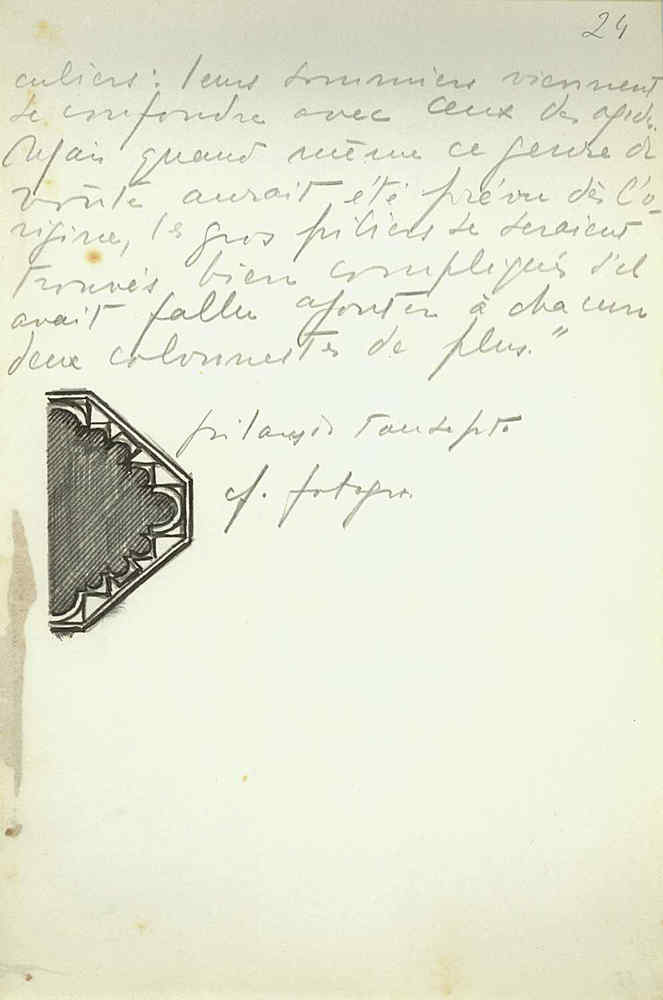 24
culiers : leurs sommiers viennent
se confondre avec ceux des ogives.
Mais quand même ce genre de
voûte aurait été prévu dès l'o-
rigine, les gros piliers se seraient
trouvés bien compliqués s'il
avait fallu ajouter à chacun
deux colonnettes de plus."
pilar
cf. fotogr.